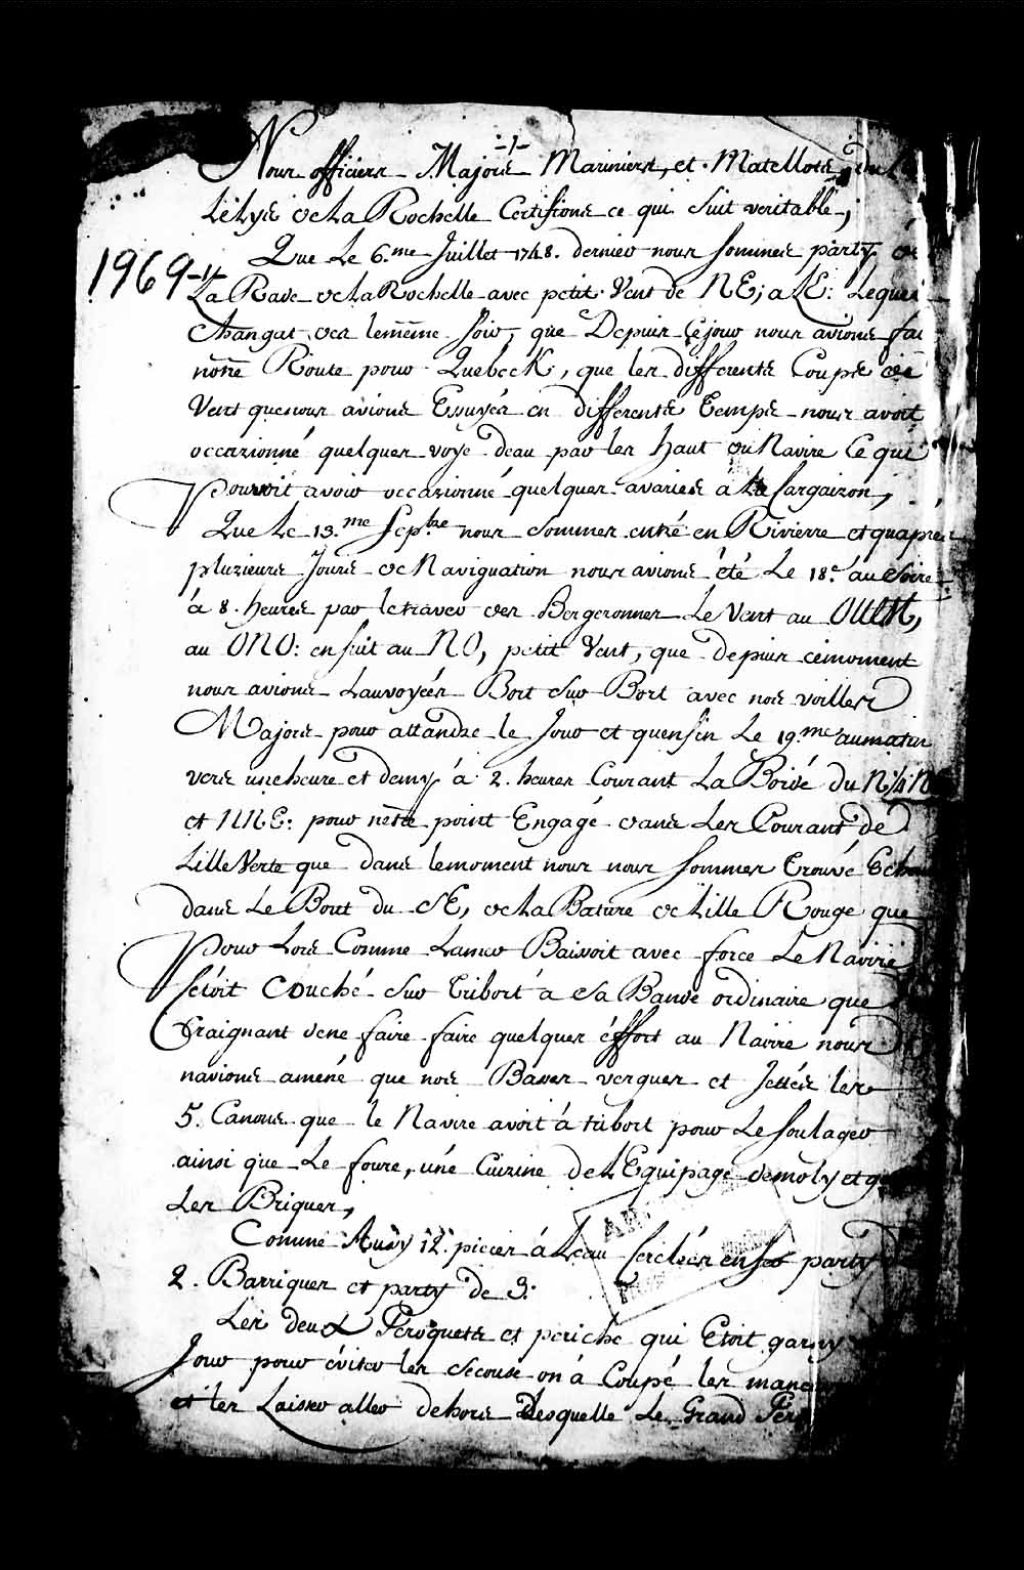 -1-
Nous officiers Majors Mariniers, et Matellots, du
Lélys de La Rochelle Certifions ce qui suit veritable,
1969-1/
Que Le 6.me Juillet 1748. dernier nous sommes party de
La Rade de La Rochelle avec petit Vent de NE; a LE: Lequel
Changat des lemême soir, que Depuis cejour nous avions fai
notre Route pour Quebeck, que les differents Coups de
Vent quenous avions Essuyés en differents temps nous avoit
occazionné quelques voye deau par les haut du Navire Ce qui
Pourroit avoir occazionné quelques avaries á la Cargaizon,
Que Le 13.me Sep.bre nous sommes entré en Rivierre et quaprés
pluzieurs Jours de Naviguation nous avions été Le 18.e au Soire
á 8. heures par le traver des Bergeronnes Le Vent au
au ONO: ensuit au NO, petit Vent, que depuis cemoment
nous avions Lauvoyés Bort sur Bort avec nos voilles
Majors pour attandre le Jour et quenfin Le 19.me aumatin
vers uneheure et demy á 2. heures Courant La Bordé du N1/4N
et NNE: pour notre point Engagé dans Les Courant de
LilleVerte que dans lemoment nous nous sommes trouvé Echou
dans Le Bout du SE, de La Bature de Lille Rouge que
Pour Lors Comme Lamer Baissoit avec force Le Navire
sétoit Couché sur tribort á sa Bande ordinaire que
Craignant dene faire faire quelques éffort au Navire nous
navions amené que nos Basses vergues et Jettés les
5. Canons que le Navire avoit á tribort pour Le soulager
ainsi que Le foure, uné Cuizine de LEquipage demoly et
Les Briques,
Comme Aussy 12. pieces á Leau serclées en fer party
2. Barriques et party de 3.
Les deux Peroquets et periche qui Etoit garny
Jour pour éviter les secouse on á Coupé les
et les Laisser aller dehors Desquelle Le Grand